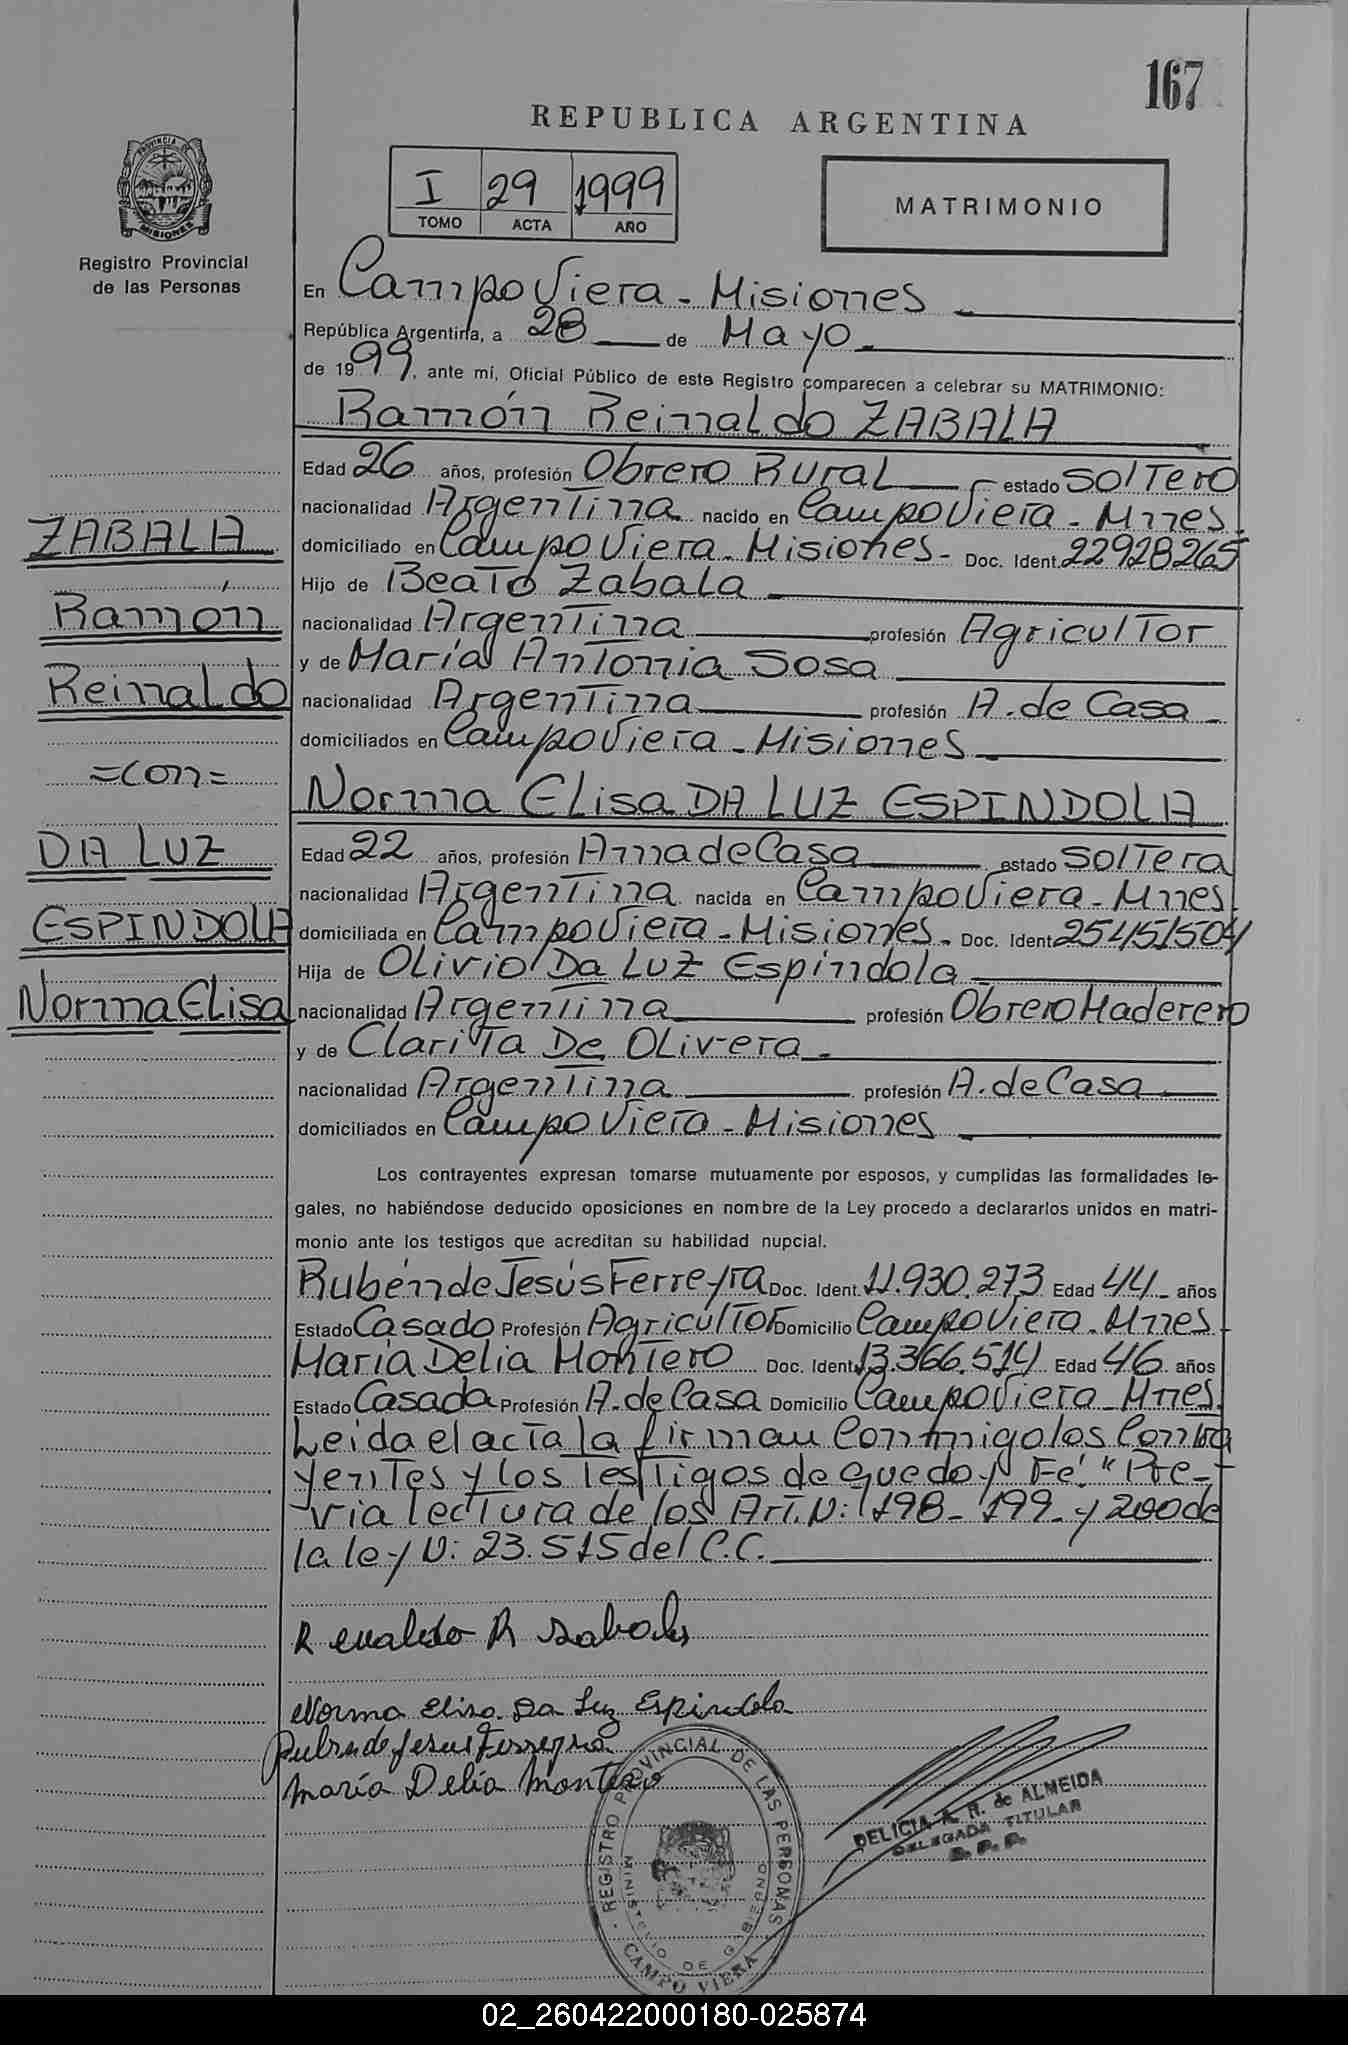 167
REPUBLICA ARGENTINA
PROVINCIA DE
MISIONES
Registro Provincial
de las Personas
I 29 1999
TOMO ACTA AÑO
MATRIMONIO
En Campo Viera - Misiones
República Argentina, a 28 de Mayo
de 1999, ante mí, Oficial Público de este Registro comparecen a celebrar su MATRIMONIO:
Ramón Reinaldo ZABALA
Edad 26 años, profesión Obrero Rural estado Soltero
nacionalidad Argentina nacido en Campo Viera - Mnes.
domiciliado en Campo Viera - Misiones - Doc. Ident. 22928265
Hijo de Beato Zabala
nacionalidad Argentina profesión Agricultor
y de María Antonia Sosa
nacionalidad Argentina profesión A. de Casa
domiciliados en Campo Viera - Misiones
ZABALA
Ramón
Reinaldo
=con=
DA LUZ
ESPINDOLA
Norma Elisa
Norma Elisa DA LUZ ESPINDOLA
Edad 22 años, profesión Ama de Casa estado Soltera
nacionalidad Argentina nacida en Campo Viera - Mnes.
domiciliada en Campo Viera - Misiones - Doc. Ident. 25451504
Hija de Olivio Da Luz Espíndola
nacionalidad Argentina profesión Obrero Maderero
y de Clarita De Olivera
nacionalidad Argentina profesión A. de Casa
domiciliados en Campo Viera - Misiones
Los contrayentes expresan tomarse mutuamente por esposos, y cumplidas las formalidades le-
gales, no habiéndose deducido oposiciones en nombre de la Ley procedo a declararlos unidos en matri-
monio ante los testigos que acreditan su habilidad nupcial.
Rubén de Jesús Ferreyra Doc. Ident. 11.930.273 Edad 44 años
Estado Casado Profesión Agricultor Domicilio Campo Viera - Mnes.
María Delia Montero Doc. Ident. 13.366.514 Edad 46 años
Estado Casada Profesión A. de Casa Domicilio Campo Viera - Mnes.
Leida el acta la firman Conmigo los Contra
yentes y los Testigos de que doy Fé. "Pre-
via lectura de los Art. N: 198 - 199 - y 200 de
la ley N: 23.515 del C.C.
Norma Elisa Da Luz Espindola
Ruben de Jesus Ferreyra
María Delia Montero
REGISTRO PROVINCIAL DE LAS PERSONAS
MINISTERIO DE GOBIERNO
CAMPO VIERA
DELICIA A. R. de ALMEIDA
DELEGADA TITULAR
02_260422000180-025874